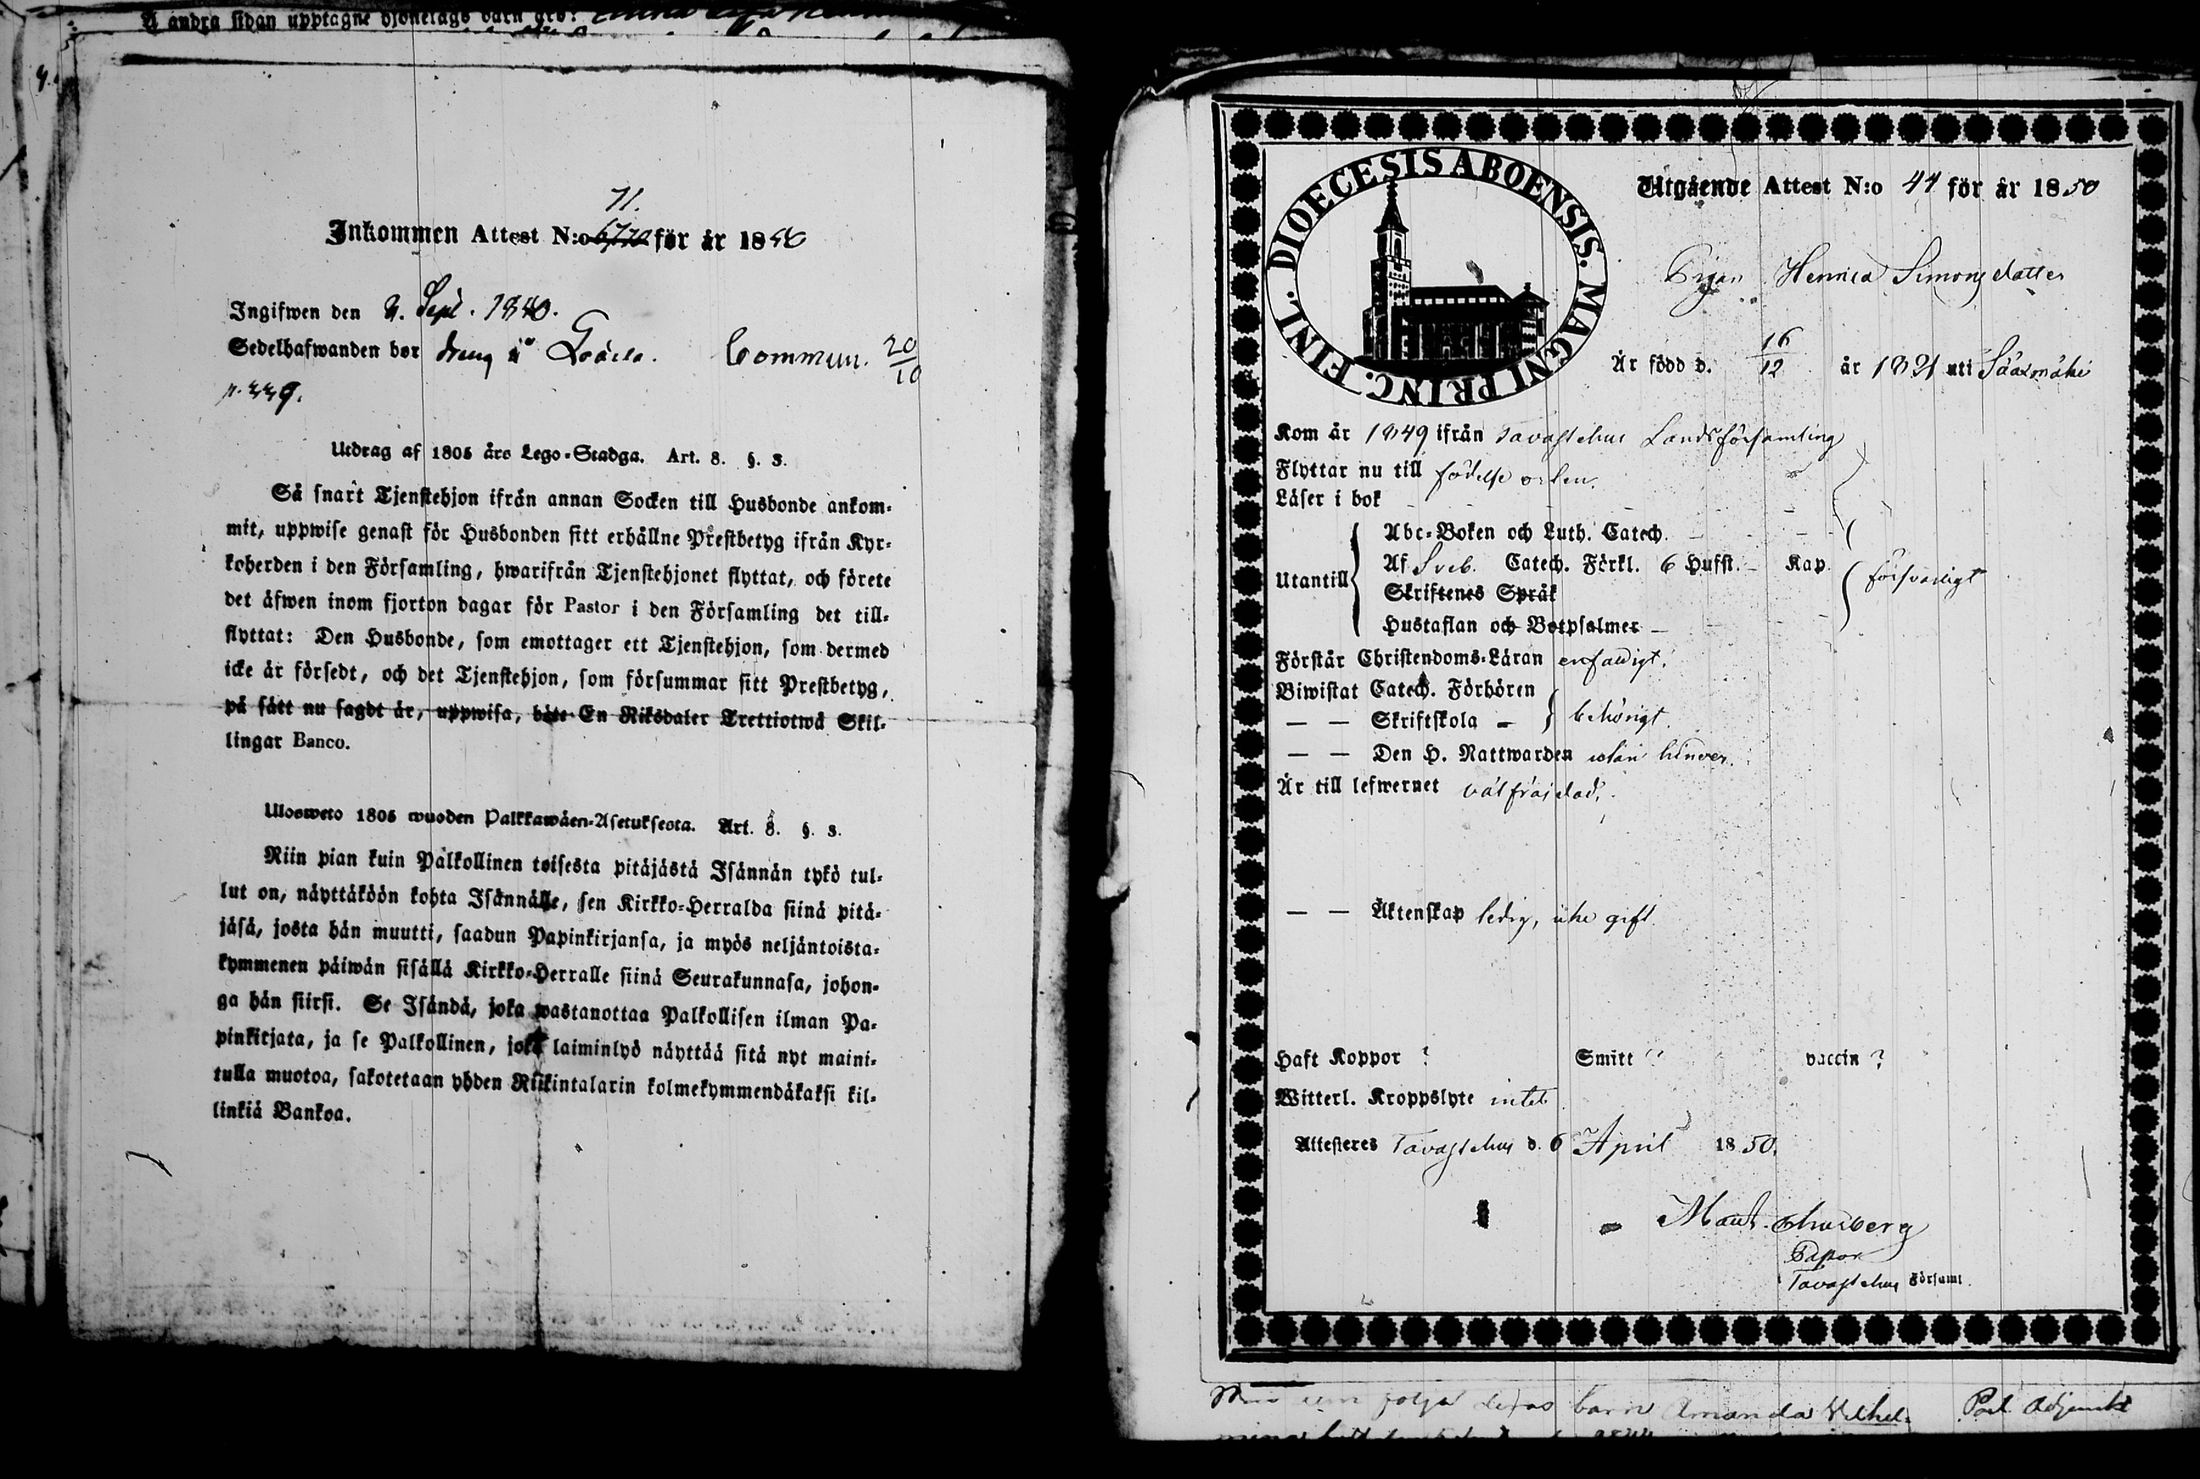 å andra sidan upptagne hjonelags barn äro:
71.
Inkommen Attest N:o för år 18
Ingifwen den Sept. 1840.
Sedelhafwanden bor dräng i Commun. 20/10
p. 339.
Utdrag af 1805 års Lego-Stadga. Art. 8. §. 3.
Så snart Tjenstehjon ifrån annan Socken till Husbonde ankom-
mit, uppwise genast för Husbonden sitt erhållne Prestbetyg ifrån Kyr-
koherden i den Församling, hwarifrån Tjenstehjonet flyttat, och förete
det äfwen inom fjorton dagar för Pastor i den Församling det till-
flyttat: Den Husbonde, som emottager ett Tjenstehjon, som dermed
icke är försedt, och det Tjenstehjon, som försummar sitt Prestbetyg,
på sätt nu sagdt är, uppwisa, böte En Riksdaler Trettiotwå Skil-
lingar Banco.
Ulosweto 1805 wuoden Palkkawäen-Asetuksesta. Art. 8. §. 3.
Niin pian kuin Palkollinen toisesta pitäjästä Isännän tykö tul-
lut on, näyttäköön kohta Isännälle, sen Kirkko-Herralda siinä pitä-
jäsä, josta hän muutti, saadun Papinkirjansa, ja myös neljäntoista-
kymmenen päiwän sisällä Kirkko-Herralle siinä Seurakunnasa, johon-
ga hän siirsi. Se Isändä, joka wastanottaa Palkollisen ilman Pa-
pinkirjata, ja se Palkollinen, joka laiminlyö näyttää sitä nyt maini-
tulla muotoa, sakotetaan yhden Riikintalarin kolmekymmendäkaksi kil-
linkiä Bankoa.
DIOECESIS ABOENSIS. MAGNI PRINC. FINL.
Utgående Attest N:o 44 för år 1850
Pigan Henrica Simonsdotter
Är född d. 16/12 år 1821 uti Sääxmäki
Kom år 1849 ifrån Tavastehus Landsförsamling
Flyttar nu till födelse orten.
Läser i bok
Abc-Boken och Luth. Catech.
Utantill Af Sveb. Catech. Förkl. 6 Hufst. Kap. försvarligt
Skriftenes Språk
Hustaflan och Botpsalmer
Förstår Christendoms-Läran enfaldigt.
Biwistat Catech. Förhören
— — Skriftskola behörigt.
— — Den H. Nattwarden utan hinder.
Är till lefwernet välfräjdad,
— — Äktenskap ledig, icke gift.
Haft Koppor ? Smitt ? vaccin ?
Witterl. Kroppslyte intet
Attesteres Tavastehus d. 6 April 1850.
Pastor
Tavastehus Församl
följer deras barn Amanda Vilhel-
Past Adjunkt